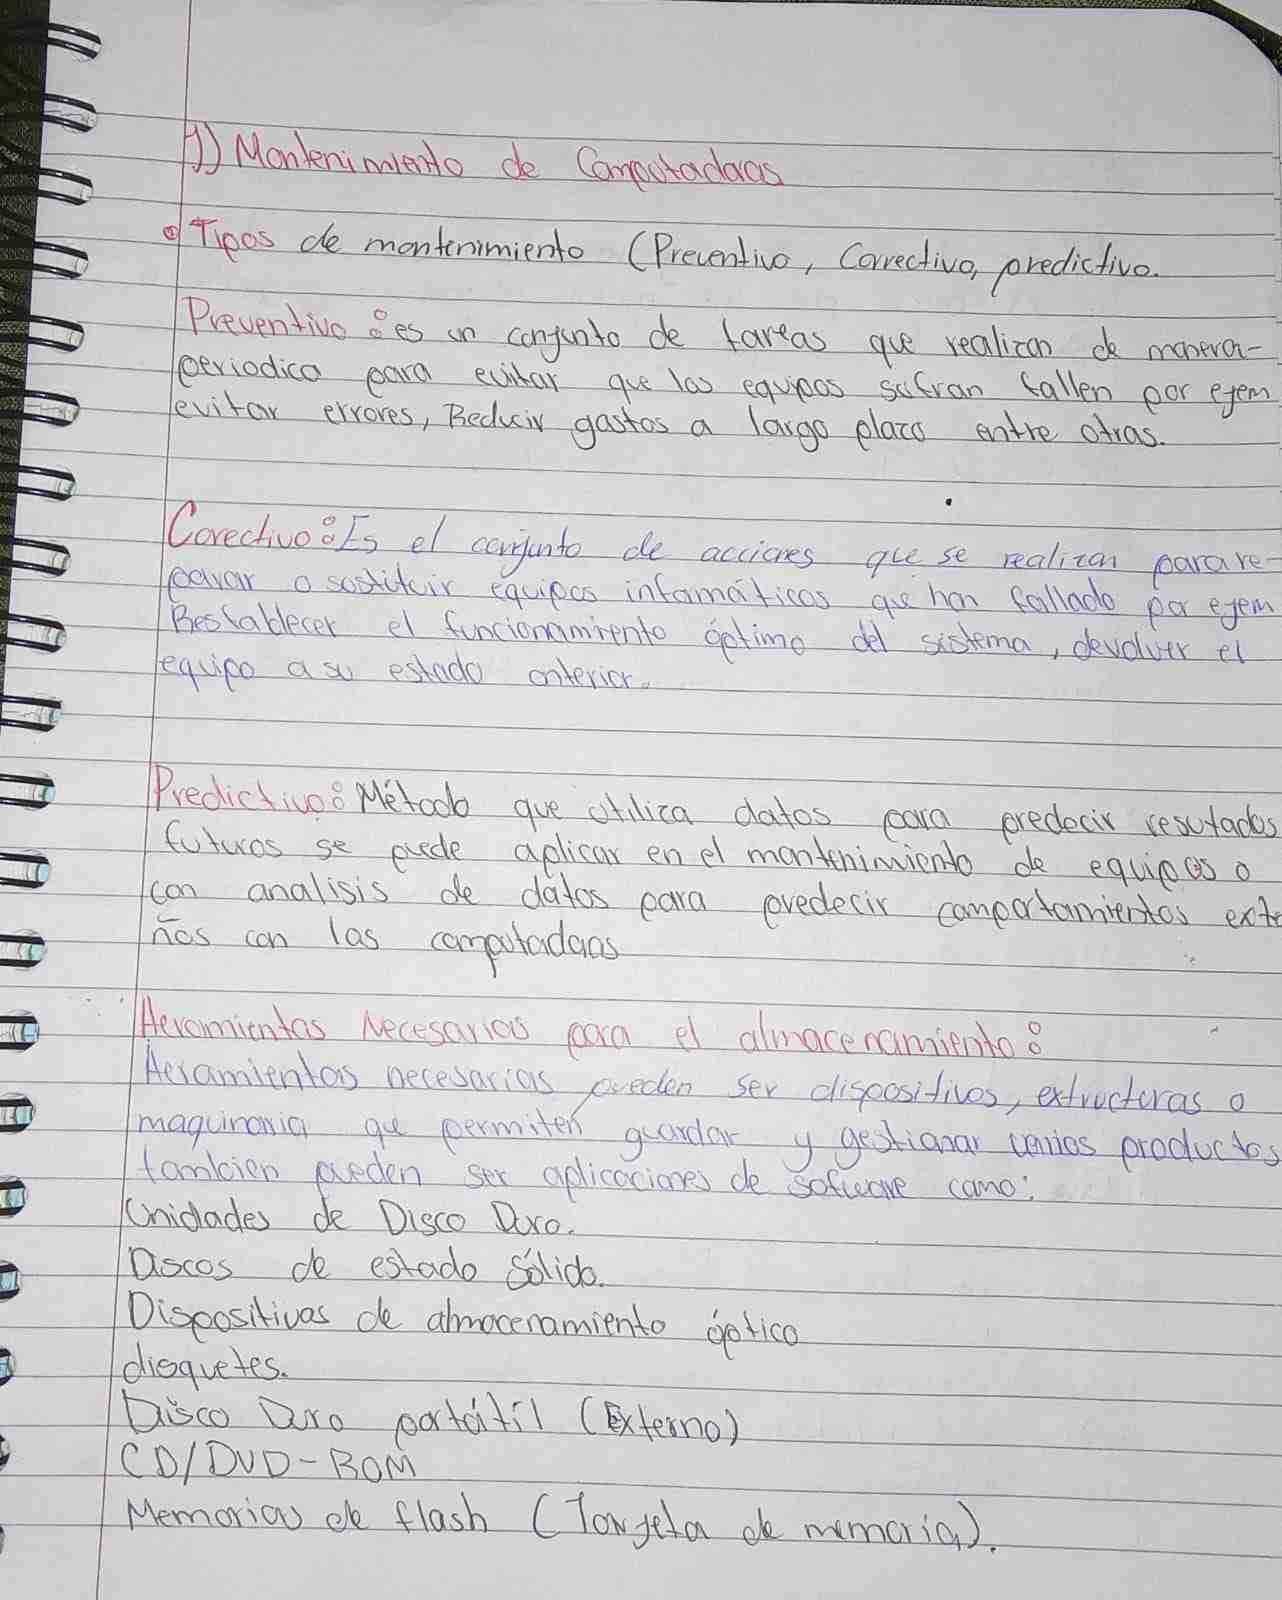 1) Mantenimiento de Computadaos
Tipos de mantenimiento (Preventivo, Correctivo, predictivo.
Preventivo: es un conjunto de tareas que realizan de manera-
periodica para evitar que los equipos sufran fallen por ejem
evitar errores, Reducir gastos a largo plazo entre otras.
Corectivo: Es el conjunto de acciones que se realizan para re-
parar o sostituir equipos infomáticos que han fallado por ejem
Restablecer el funcionamiento óptimo del sistema, devolver el
equipo a su estado anterior.
Predictivo: Método que utiliza datos para predecir resutados
futuros se puede aplicar en el mantenimiento de equipos o
con analisis de datos para predecir comportamientos extr
ños con las computadaos
Heramientas Necesarias para el almacenamiento:
Heramientas necesarias pueden ser dispositivos, extructuras o
maquinaria que permiten guardar y gestionar varios productos
tambien pueden ser aplicaciones de sofware como:
Unidades de Disco Duro.
Discos de estado sólido.
Dispositivos de almacenamiento óptico
disquetes.
Disco Duro portátil (Externo)
CD/DVD-ROM
Memorias de flash (Tarjeta de memoria).